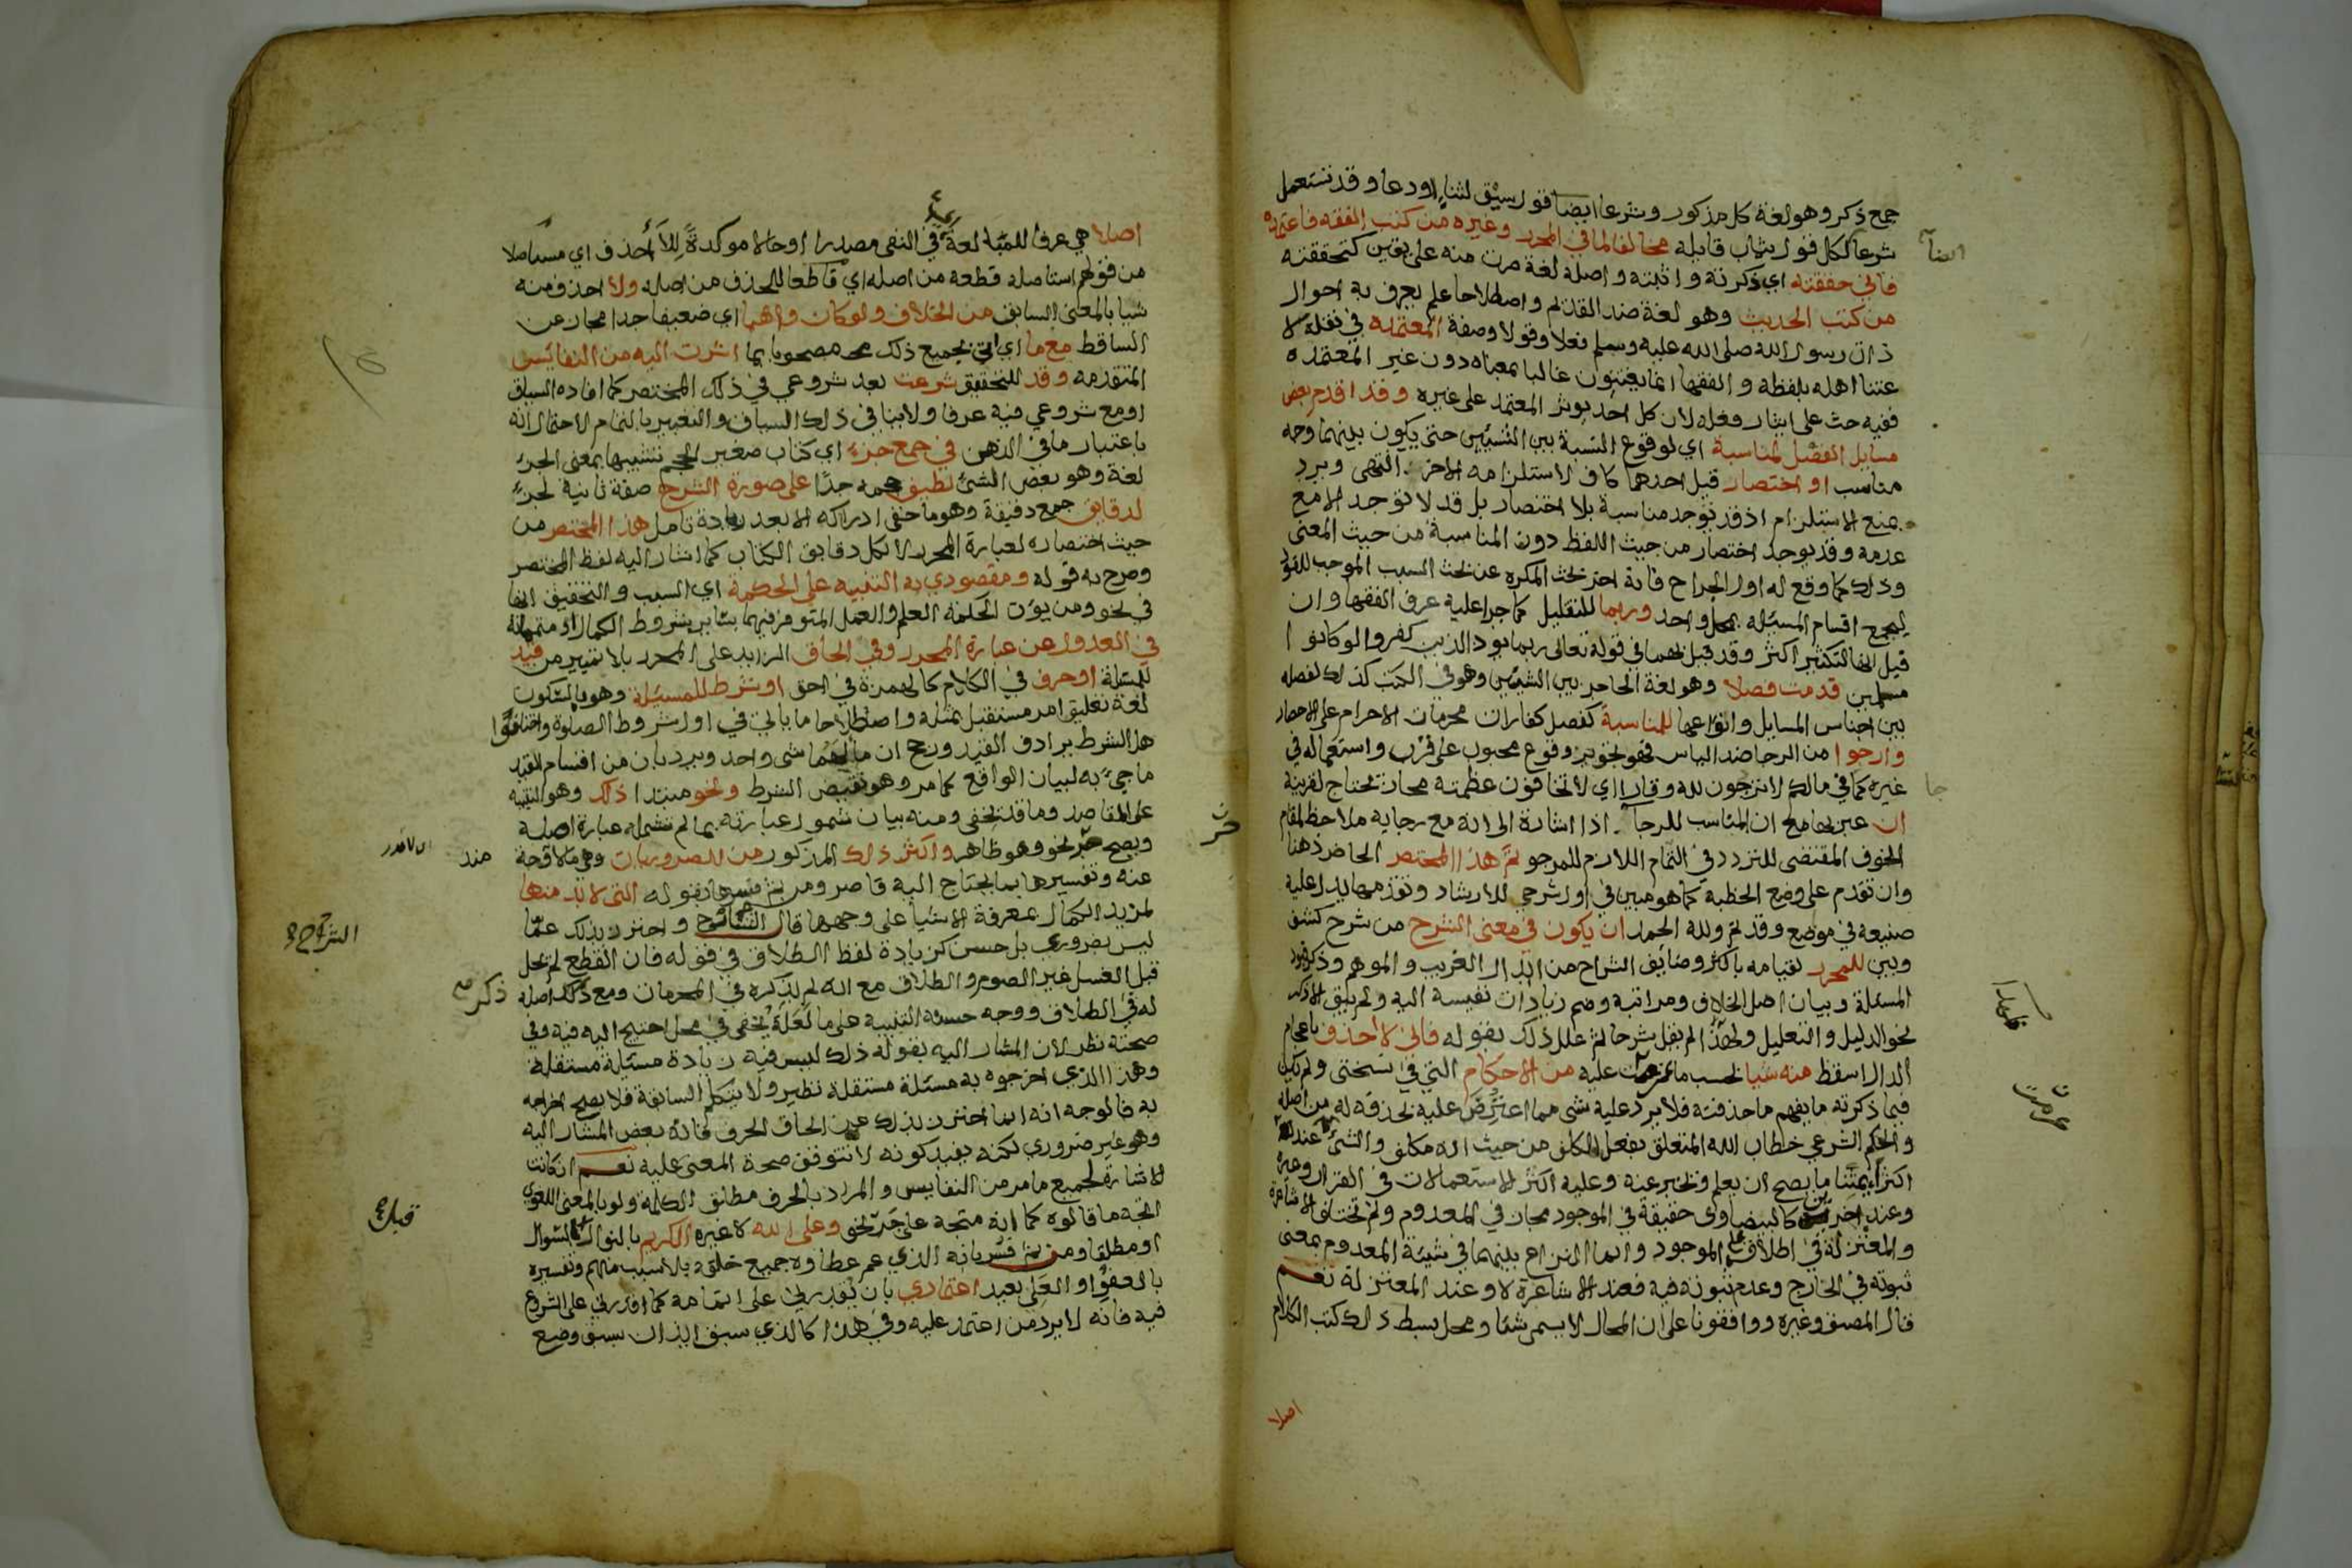 جمع ذكر وهو لغة كل مذكور وشرعا ايضا قول سيق لثناء او دعا وقد تستعمل
شرعا لكل قول يثاب قايله مخالفا لما في المحرر وغيره من كتب الفقه فاعتمده
فاني حققته اي ذكرته واثبته واصله لغة صرت منه على يقين كتحققته
من كتب الحديث وهو لغة ضد القديم واصطلاحا علم يعرف به احوال
ذات رسول الله صلى الله عليه وسلم فعلا وقولا وصفة المعتمدة في نقله لا
عتنا اهله بلفظه والفقها انما يعتنون غالبا بمعناه دون غير المعتمدة
ففيه حث على ايثار وفعله لان كل احد يوثر المعتمد على غيره وقد اقدم بعض
مسايل الفصل لمناسبة اي لوقوع النسبة بين الشيئين حتى يكون بينهما وجه
مناسب او اختصار قيل احدهما كاف لاستلزامه الاخر انتهى ويرد
بمنع الاستلزام اذ قد توجد مناسبة بلا اختصار بل قد لا توجد الا مع
عدمه وقد يوجد اختصار من حيث اللفظ دون المناسبة من حيث المعنى
وذلك كما وقع له اول الجراح فانه اخر بحث المكره عن بحث السبب الموجب للقود
ليجمع اقسام المسئلة بمحل واحد وربما للتقليل كما جرا عليه عرف الفقها وان
قيل انها للتكثير اكثر وقد قيل بهما في قوله تعالى ربما يود الذين كفروا لو كانوا
مسلمين قدمت فصلا وهو لغة الحاجز بين الشيئين وهو في الكتب كذلك لفصله
بين اجناس المسايل وانواعها للمناسبة كفصل كفارات محرمات الاحرام على الاحصار
وارجوا من الرجا ضد الياس فهو تجويز وقوع محبوب على قرب واستعماله في
غيره كما في مالكم لا ترجون لله وقارا اي لا تخافون عظمته مجاز يحتاج لقرينة
ان عبر بها مع ان المناسب للرجا اذا اشارة الى انه مع رجايه ملاحظ لمقام
الخوف المقتضى للتردد في التمام اللازم للمرجو تم هذا المختصر الحاضر ذهنا
وان تقدم على وضع الخطبة كما هو مبين في اول شرحي للارشاد وتقدمها يدل عليه
صنيعه في موضع وقد تم ولله الحمد ان يكون في معنى الشرح من شرح كشف
وبين للمحرر لقيامه باكثر وضايف الشراح من ابدال الغريب والموهم وذكر قيود
المسئلة وبيان اصل الخلاف ومراتبه وضم زيادات نفيسة اليه ولم يبق الا ذكر
نحو الدليل والتعليل ولهذا لم يقل شرحا ثم علل ذلك بقوله فاني لا احذف باعجام
الدال اسقط منه شيا بحسب ما عزمت عليه من الاحكام التي في نسختي ولم يكن
فيما ذكرته ما يفهم ما حذفته فلا يرد عليه شى مما اعترض عليه بحذفه له من اصله
والحكم الشرعي خطاب الله المتعلق بفعل المكلف من حيث انه مكلف والشئ عند
اكثر ائمتنا ما يصح ان يعلم ويخبر عنه وعليه اكثر الاستعمالات في القران وغيره
وعند اخرين كالبيضاوى حقيقة في الموجود مجاز في المعدوم ولم تختلف الاشاعرة
والمعتزلة في اطلاقه على الموجود وانما النزاع بينهما في شيئة المعدوم بمعنى
ثبوته في الخارج وعدم ثبوته فيه فعند الاشاعرة لا وعند المعتزلة نعم
قال المصنف وغيره ووافقونا على ان المحال لا يسمى شيا ومحل بسط ذلك كتب الكلام
اصلا
اصلا هي عرفا للمبالغة في النفى مصدرا او حالا موكدة للا احذف اي مستاصلا
من قولهم استاصله قطعه من اصله اي قاطعا للحذف من اصله ولا احذف منه
شيا بالمعنى السابق من الخلاف ولو كان واهيا اي ضعيفا جدا مجاز عن
الساقط مع ما اي اتي بجميع ذلك مصحوبا بما اشرت اليه من النفائس
المتقدمة وقد للتحقيق شرعت بعد شروعي في ذلك المختصر كما افاده السياق
او مع شروعي فيه عرفا ولا ينافي ذلك السياق والتعبير بالتمام لاحتمال انه
باعتبار ما في الذهن في جمع جزء اي كتاب صغير الحجم تشبيها بمعنى الجزء
لغة وهو بعض الشئ لطيف حجمه جدا على صورة الشرح صفة ثانية لجزء
لدقايق جمع دقيقة وهو ما خفي ادراكه الا بعد زيادة تامل هذا المختصر من
حيث اختصاره لعبارة المحرر لا لكل دقايق الكتاب كما اشار اليه لفظ المختصر
وصرح به قوله ومقصودي به التنبيه على الحكمة اي السبب والتحقيق انها
في نحو ومن يؤت الحكمة العلم والعمل المتوفر فيهما ساير شروط الكمال او متمماته
في العدول عن عبارة المحرر وفي الحاق الزايد على المحرر بلا تمييز من قيد
للمسئلة او حرف في الكلام كالهمزة في احق او شرط للمسئلة وهو بالسكون
لغة تعليق امر مستقبل بمثله واصطلاحا ما ياتي في اول شروط الصلوة واختلفوا
هل الشرط يرادف القيد ورجح ان مالهما شى واحد ويرد بان من اقسام القيد
ما جيء به لبيان الواقع كما مر وهو نقيض الشرط ونحو مبتدا ذلك وهو التنبيه
على المقاصد وما قد يخفى ومنه بيان شمول عبارته بما لم تشمله عبارة اصله
ويصح جر نحو وهو ظاهر واكثر ذلك المذكور من الضروريات وهي ما لا مندوحة
عنه وتفسيرها بما يحتاج اليه قاصر ومن ثم فسرها بقوله التي لا بد منها
لمزيد الكمال بمعرفة الاشيا على وجهها قال الشارح واحترز بذلك عما
ليس بضروري بل حسن كزيادة لفظ الطلاق في قوله فان انقطع لم يحل
قبل الغسل غير الصوم والطلاق مع انه لم يذكره في المحرمات ومع ذكر اصله
له في الطلاق ووجه حسنه التنبيه على ما لعله يخفى في محل احتيج اليه فيه وفي
صحته نظر لان المشار اليه بقوله ذلك ليس فيه زيادة مسئلة مستقلة
وهذا الذي اخرجوه به مسئلة مستقلة نظير ولا يتكلم السابقة فلا يصح اخراجه
به فالوجه انه انما احترز بذلك عن الحاق الحرف فانه بعض المشار اليه
وهو غير ضروري لكنه بقيد كونه لا تتوقف صحة المعنى عليه نعم ان كانت
الاشارة لجميع ما مر من النفايس والمراد بالحرف مطلق الكلمة ولو بالمعنى اللغوي
اتجه ما قالوه كما انه متجه على جر نحو وعلى الله لا غيره الكريم بالنوال قبل السؤال
او مطلقا ومن ثم فسر بانه الذي عم عطاوه جميع خلقه بلا سبب منهم وتفسيره
بالعفو او العلي بعيد اعتمادي بان يقدرني على اتمامه كما اقدرني على الشروع
فيه فانه لا يرد من اعتمد عليه وفي هذا كالذي سبق ايذان بسبق وضع